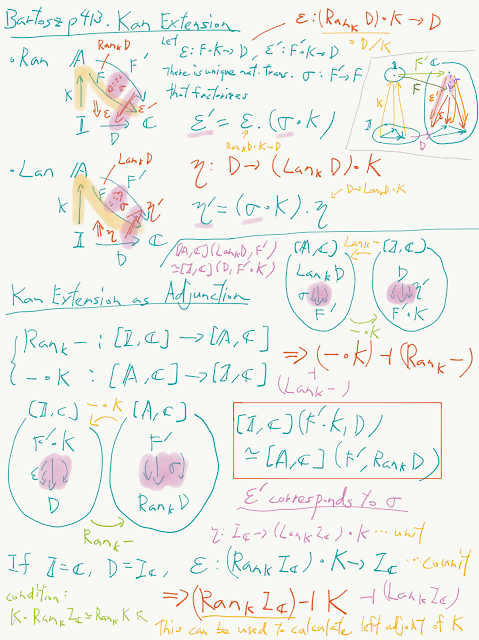 Bartosz p413. Kan Extension
ε: (Ran_K D)∘K → D
= D/K
•Ran
A
Ran_K D
F
F'
σ
K
ε
ε'
I
D
C
Let
ε: F∘K→D, ε': F'∘K→D
There is unique nat. trans. σ: F'→F
that factorizes
ε' = ε.(σ∘K)
Ran_K D∘K→D
1
F'
C
F
K
ε'
ε
I
D
•Lan
A
Lan_K D
F
F'
σ
K
η
η'
I
D
C
η: D → (Lan_K D)∘K
D→Lan_K D∘K
η' = (σ∘K).η
[A,C](Lan_K D, F')
≃[I,C](D, F'∘K)
[A,C]
Lan_K −
[I,C]
Lan_K D
D
σ
η'
F'
F'∘K
−∘K
Kan Extension as Adjunction
Ran_K − : [I,C] → [A,C]
−∘K : [A,C] → [I,C]
⇒ (−∘K) ⊣ (Ran_K −)
⊣
(Lan_K −)
[I,C]
−∘K
[A,C]
F'∘K
F'
ε'
σ
D
Ran_K D
Ran_K −
[I,C](F'∘K, D)
≃[A,C](F', Ran_K D)
ε' corresponds to σ
η: I_C → (Lan_K I_C)∘K … unit
If I=C, D=I_C, ε: (Ran_K I_C)∘K → I_C … counit
condition:
K∘Ran_K I_C ≃ Ran_K K
⇒ (Ran_K I_C) ⊣ K ⊣ (Lan_K I_C)
This can be used to calculate left adjoint of K